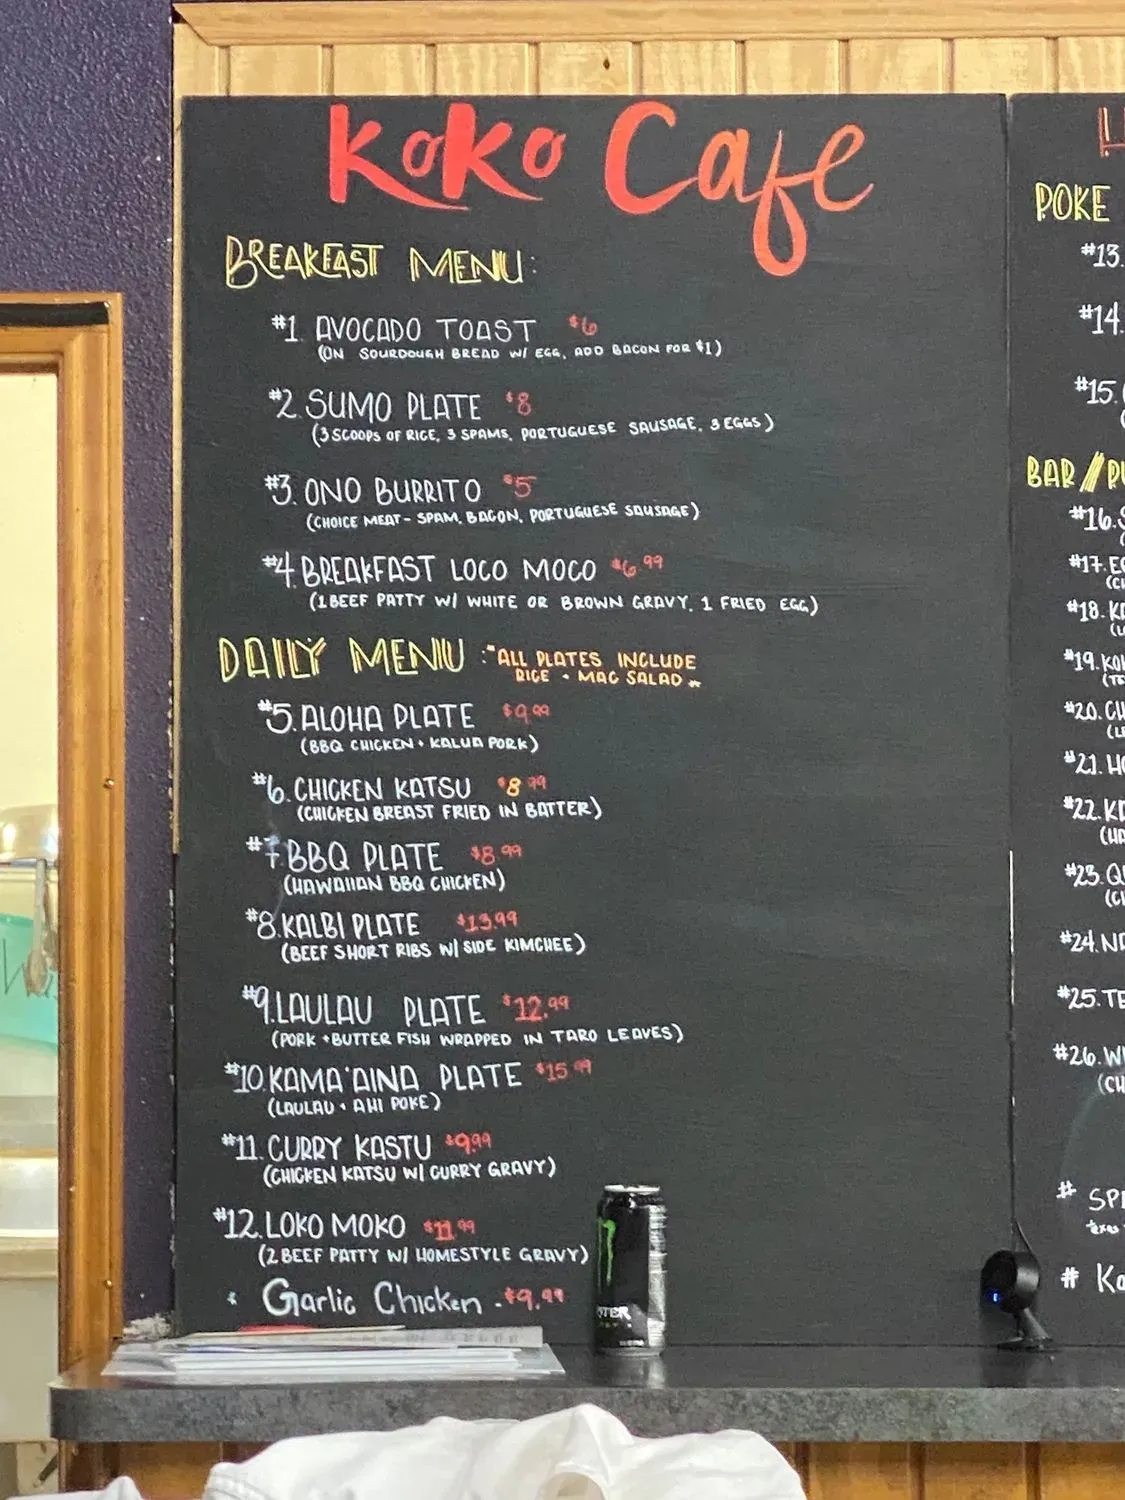 Koko Cafe
BREAKFAST MENU:
#1. AVOCADO TOAST $6
(ON SOURDOUGH BREAD W/ EGG, ADD BACON FOR $1)
#2. SUMO PLATE $8
(3 SCOOPS OF RICE, 3 SPAMS, PORTUGUESE SAUSAGE, 3 EGGS)
#3. ONO BURRITO $5
(CHOICE MEAT- SPAM, BACON, PORTUGUESE SAUSAGE)
#4. BREAKFAST LOCO MOCO $6.99
(1 BEEF PATTY W/ WHITE OR BROWN GRAVY, 1 FRIED EGG)
DAILY MENU : *ALL PLATES INCLUDE
RICE + MAC SALAD *
#5. ALOHA PLATE $9.99
(BBQ CHICKEN + KALUA PORK)
#6. CHICKEN KATSU $8.99
(CHICKEN BREAST FRIED IN BATTER)
#7. BBQ PLATE $8.99
(HAWAIIAN BBQ CHICKEN)
#8. KALBI PLATE $13.99
(BEEF SHORT RIBS W/ SIDE KIMCHEE)
#9. LAULAU PLATE $12.99
(PORK + BUTTER FISH WRAPPED IN TARO LEAVES)
#10. KAMA'AINA PLATE $15.99
(LAULAU + AHI POKE)
#11. CURRY KASTU $9.99
(CHICKEN KATSU W/ CURRY GRAVY)
#12. LOKO MOKO $11.99
(2 BEEF PATTY W/ HOMESTYLE GRAVY)
Garlic Chicken - $9.99
POKE
#13.
#14.
#15.
BAR/
#16.
#17.
#18.
#19.
#20.
#21.
#22.
#23.
#24.
#25.
#26.
#
#